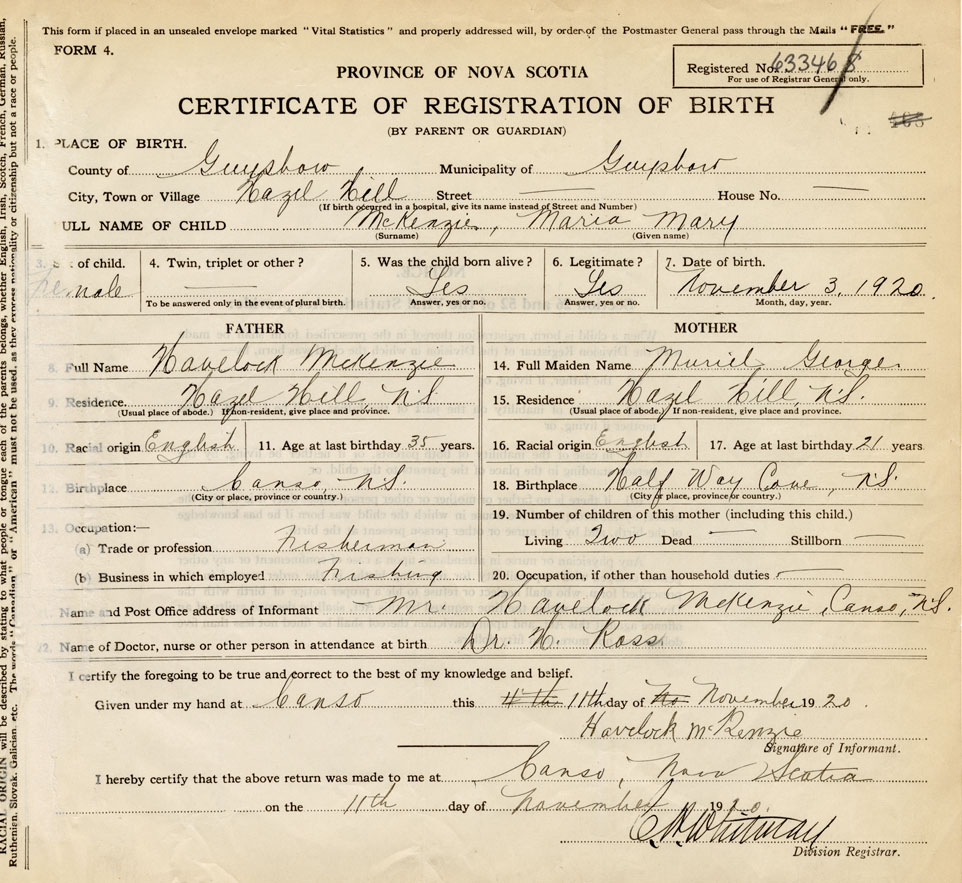 This form if placed in an unsealed envelope marked "Vital Statistics" and properly addressed will, by order of the Postmaster General pass through the Mails "FREE."
FORM 4.
Registered No. 63346 8
For use of Registrar General only.
PROVINCE OF NOVA SCOTIA
CERTIFICATE OF REGISTRATION OF BIRTH
(BY PARENT OR GUARDIAN)
1. PLACE OF BIRTH.
County of Guysboro Municipality of Guysboro
City, Town or Village Hazel Hill Street — House No. —
(If birth occurred in a hospital, give its name instead of Street and Number)
ULL NAME OF CHILD McKenzie, Maria Mary
(Surname) (Given name)
3. of child. 4. Twin, triplet or other? 5. Was the child born alive? 6. Legitimate? 7. Date of birth.
Female — Yes Yes November 3, 1920.
To be answered only in the event of plural birth. Answer, yes or no. Answer, yes or no. Month, day, year.
FATHER
8. Full Name Havelock McKenzie
9. Residence Hazel Hill, N.S.
(Usual place of abode.) If non-resident, give place and province.
10. Racial origin English 11. Age at last birthday 35 years.
12. Birthplace Canso, N.S.
(City or place, province or country.)
13. Occupation:—
(a) Trade or profession Fisherman
(b) Business in which employed Fishing
MOTHER
14. Full Maiden Name Muriel George
15. Residence Hazel Hill, N.S.
(Usual place of abode.) If non-resident, give place and province.
16. Racial origin English 17. Age at last birthday 21 years
18. Birthplace Half Way Cove, N.S.
(City or place, province or country.)
19. Number of children of this mother (including this child.)
Living Two Dead — Stillborn —
20. Occupation, if other than household duties —
21. Name and Post Office address of Informant Mr. Havelock McKenzie, Canso, N.S.
22. Name of Doctor, nurse or other person in attendance at birth Dr. H. Ross
I certify the foregoing to be true and correct to the best of my knowledge and belief.
Given under my hand at Canso this 11th day of November 1920.
Havelock McKenzie
Signature of Informant.
I hereby certify that the above return was made to me at Canso, Nova Scotia
on the 11th day of November 1920.
Whitman
Division Registrar.
RACIAL ORIGIN will be described by stating to what people or tongue each of the parents belongs, whether English, Irish, Scotch, French, German, Russian,
Ruthenian, Slovak, Galician, etc. The words "Canadian" or "American" must not be used, as they express nationality or citizenship but not a race or people.